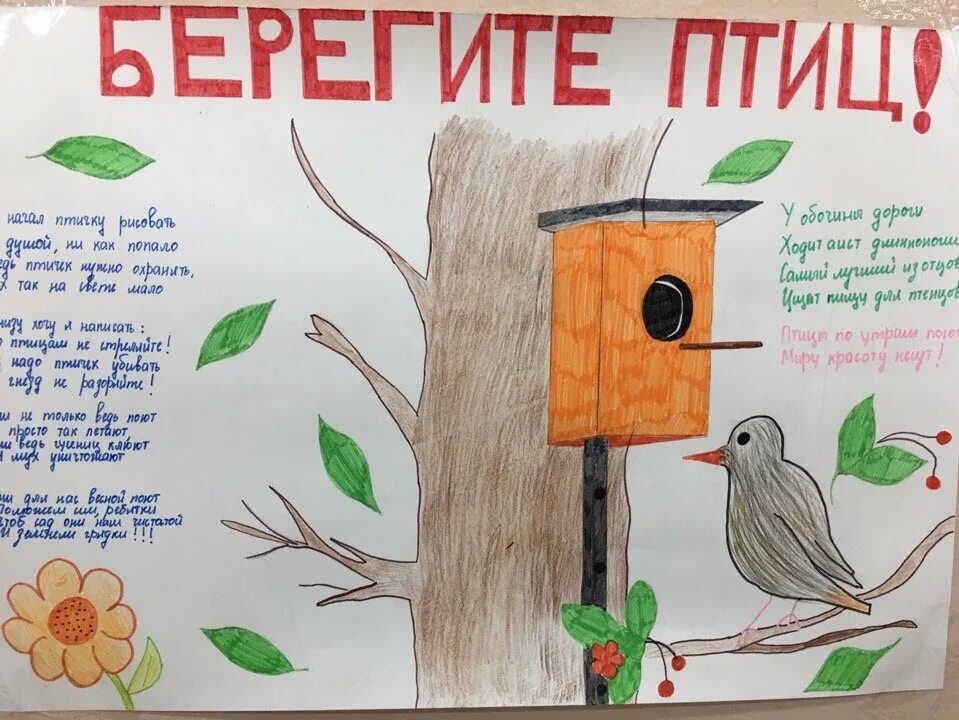 БЕРЕГИТЕ ПТИЦ!
начал птичку рисовать
душой, ни как попало
птичек нужно охранять,
так на свете мало
хочу я написать:
птицам не стреляйте!
надо птичек убивать
гнезд не разоряйте!
не только ведь поют
просто так летают
ведь гусениц клюют
мух уничтожают
для нас весной поют
Поможем им, ребятки
сад они наш чистят
И зелен грядки!!!
У обочины дороги
Ходит аист длинноноги
Самый лучший из отцов
Ищет пищу для птенцов
Птицы по утрам поют
Миру красоту несут!